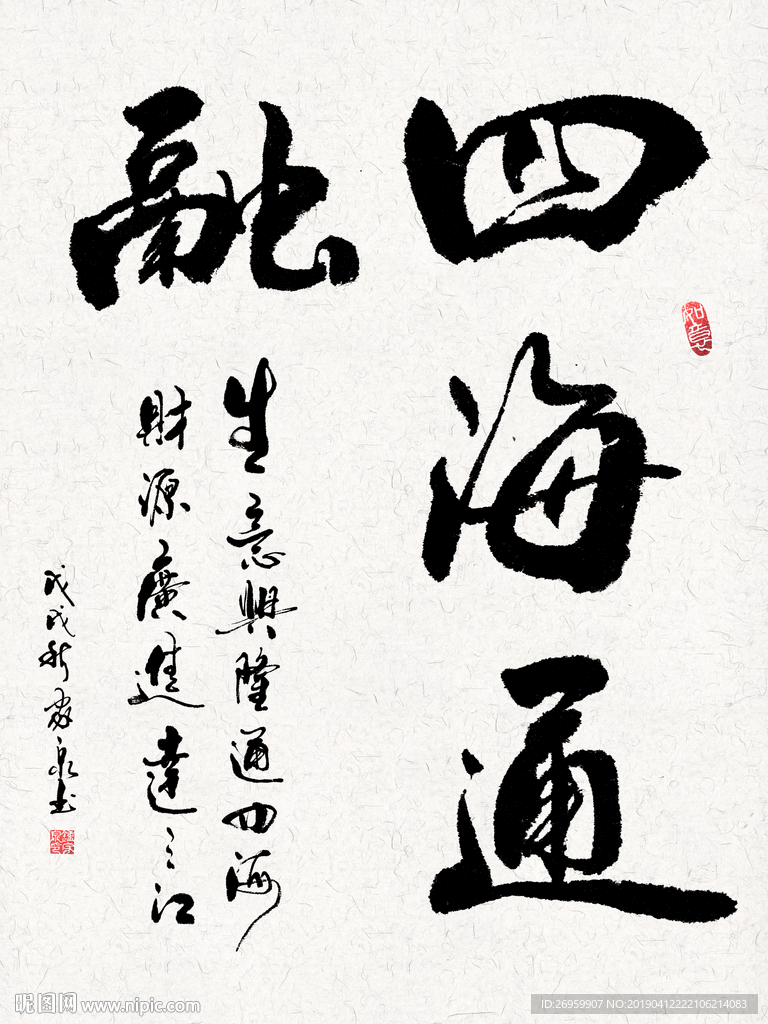 四海通
融
如意
生意興隆通四海
財源廣進達三江
戊戌秋
泉书
昵图网 www.nipic.com
ID:26959907 NO:20190412222106214083